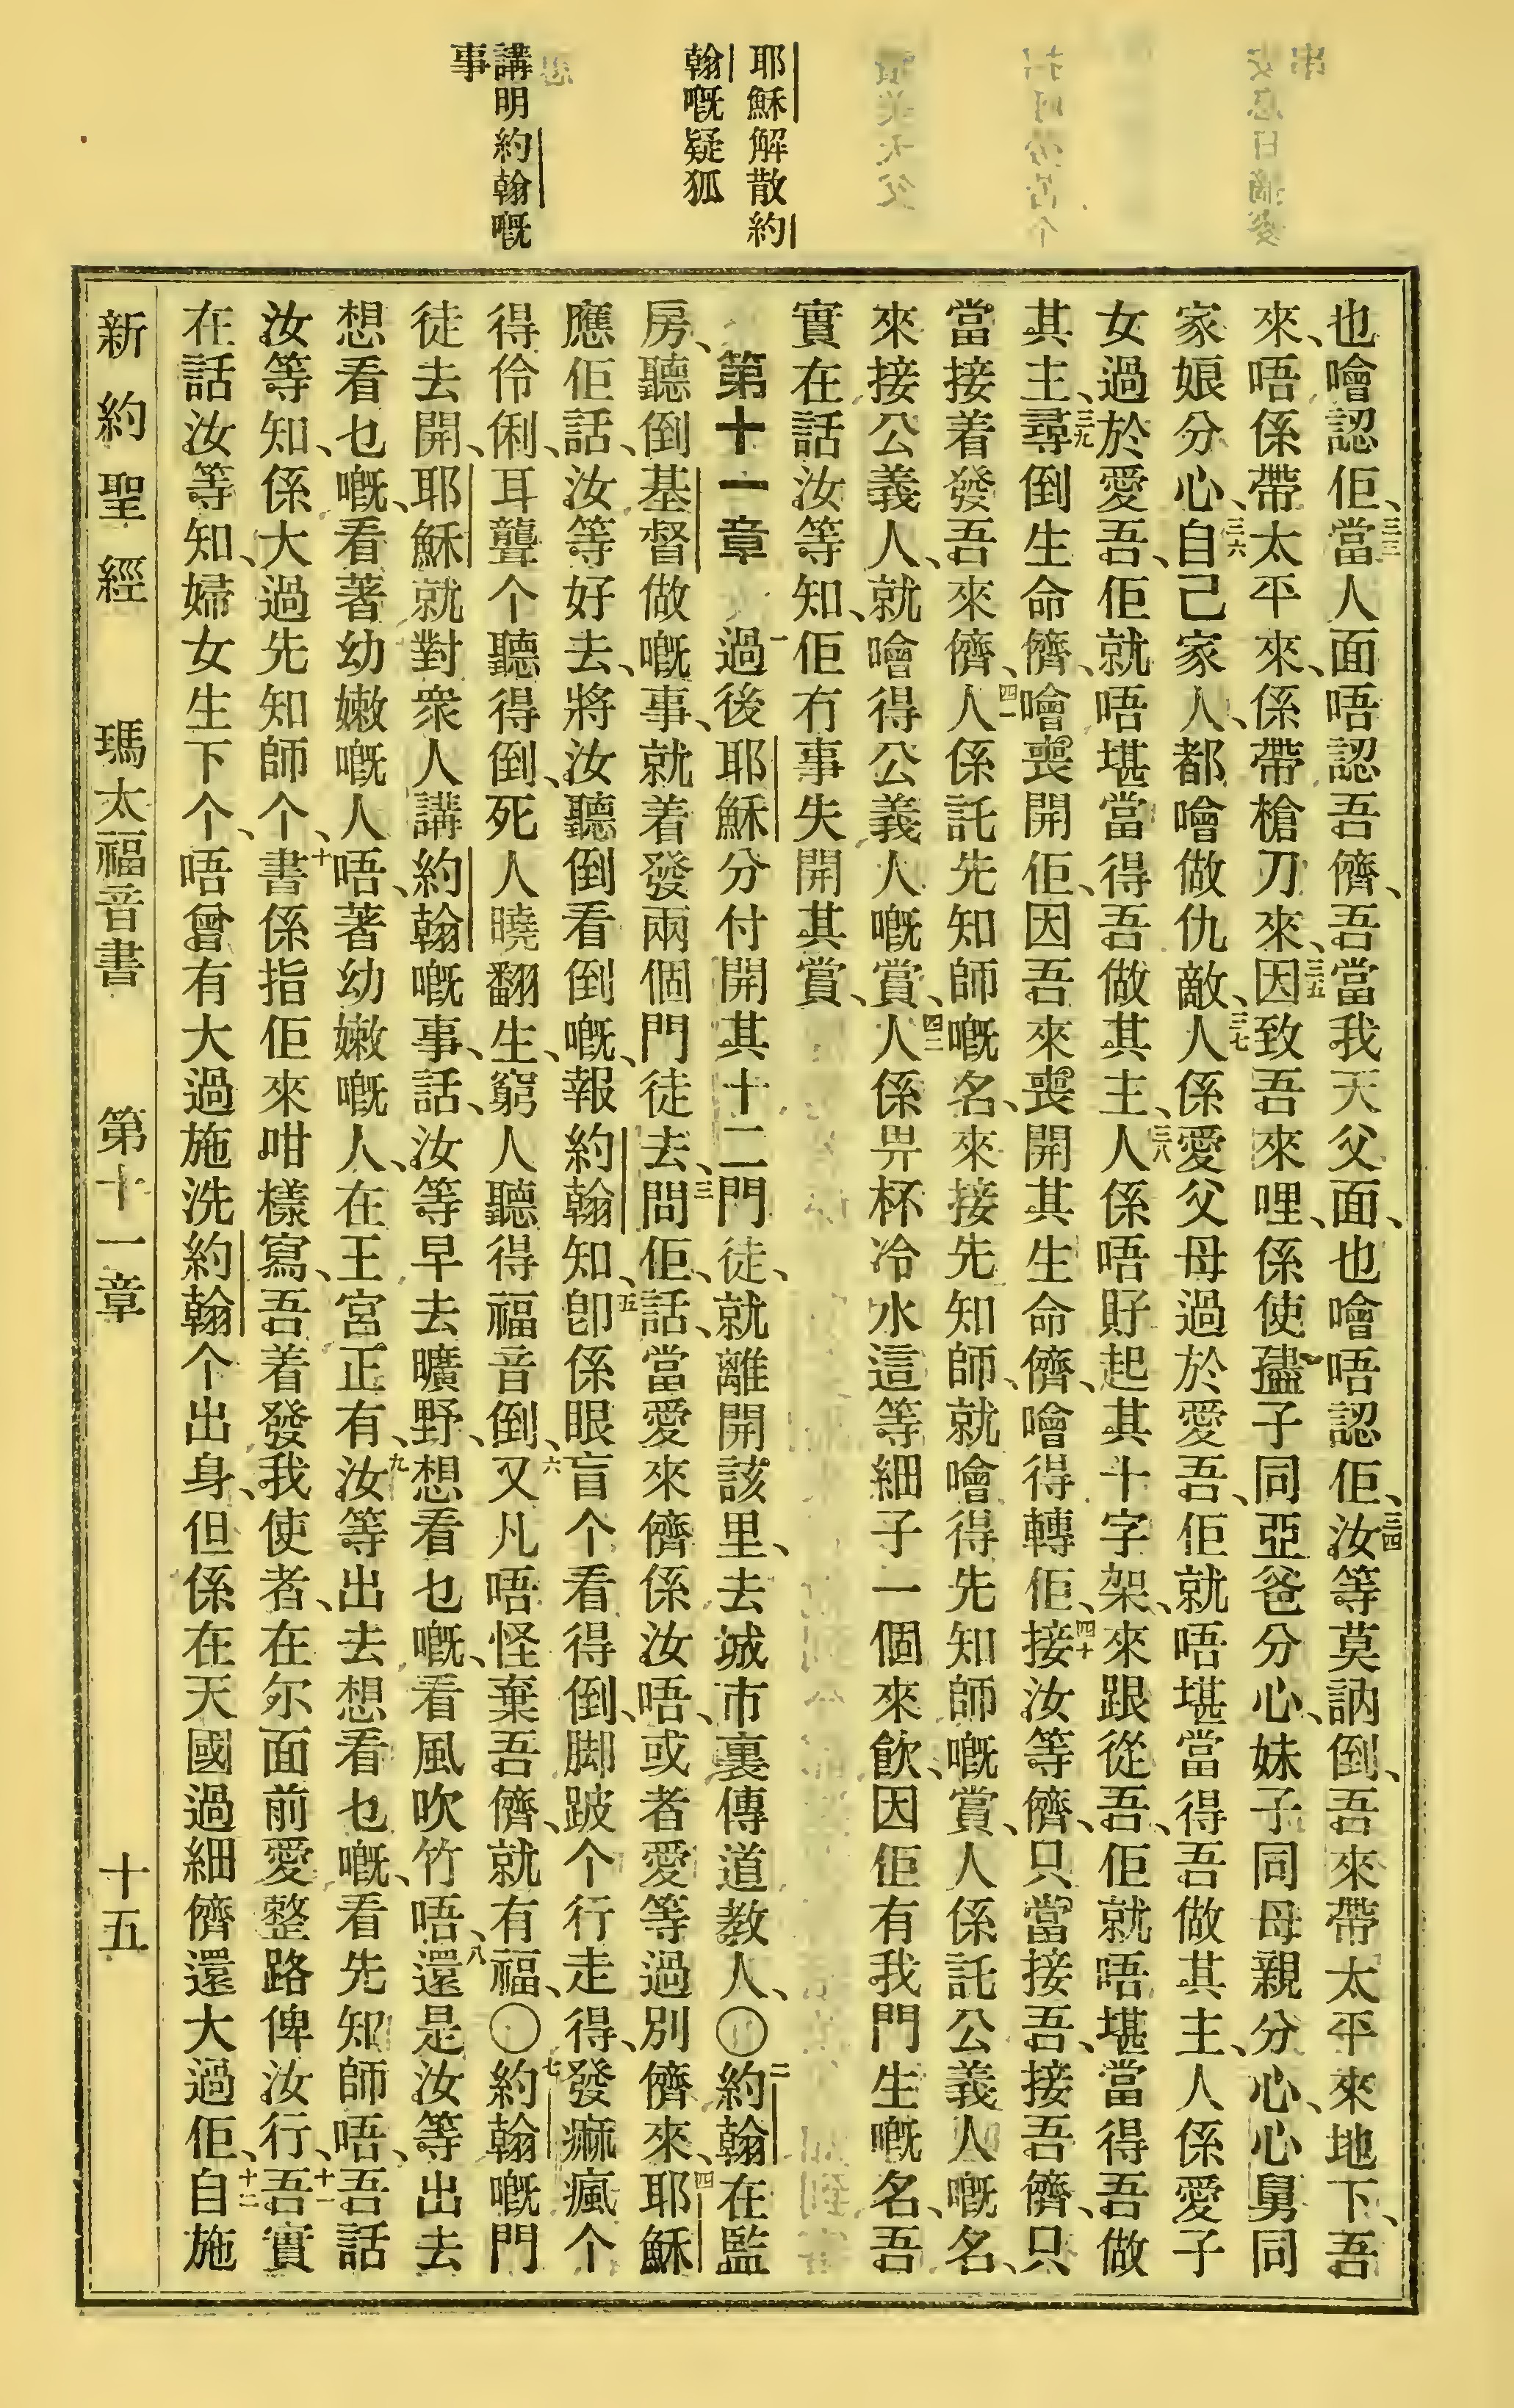 耶穌解散約
翰嘅疑狐
講明約翰嘅
事
也噲認佢、三三當人面唔認吾儕、吾當我天父面、也噲唔認佢、三四汝等莫訥倒、吾來帶太平來地下、吾
來、唔係帶太平來、係帶槍刀來、三五因致吾來哩、係使𡥧子同亞爸分心、妹子同母親分心、心舅同
家娘分心、三六自己家人、都噲做仇敵、三七人係愛父母過於愛吾、佢就唔堪當得吾做其主、人係愛子
女過於愛吾、佢就唔堪當得吾做其主、三八人係唔好起其十字架、來跟從吾、佢就唔堪當得吾做
其主、三九尋倒生命儕、噲喪開佢、因吾來喪開其生命儕、噲得轉佢、四十接汝等儕、只當接吾、接吾儕、只
當接着發吾來儕、四一人係託先知師嘅名、來接先知師、就噲得先知師嘅賞、人係託公義人嘅名、
來接公義人、就噲得公義人嘅賞、四二人係畀杯冷水這等細子一個來飲、因佢有我門生嘅名、吾
實在話汝等知、佢冇事失開其賞、
第十一章 一過後耶穌分付開其十二門徒、就離開該里、去城市裏傳道教人、〇二約翰在監
房、聽倒基督做嘅事、就着發兩個門徒去、三問佢、話、當愛來儕係汝唔、或者愛等過別儕來、四耶穌
應佢話、汝等好去、將汝聽倒看倒嘅、報約翰知、五卽係眼盲个看得倒、脚跛个行走得、發痲瘋个
得伶俐、耳聾个聽得倒、死人曉翻生、窮人聽得福音倒、六又凡唔怪棄吾儕、就有福、〇七約翰嘅門
徒去開、耶穌就對衆人講約翰嘅事、話、汝等早去曠野、想看乜嘅、看風吹竹唔、八還是汝等出去
想看乜嘅、看著幼嫩嘅人唔、著幼嫩嘅人、在王宮正有、九汝等出去想看乜嘅、看先知師唔、吾話
汝等知、係大過先知師个、十書係指佢來咁樣寫、吾着發我使者、在尔面前愛整路俾汝行、十一吾實
在話汝等知、婦女生下个、唔曾有大過施洗約翰个出身、但係在天國過細儕還大過佢、十二自施
新約聖經 瑪太福音書 第十一章 十五